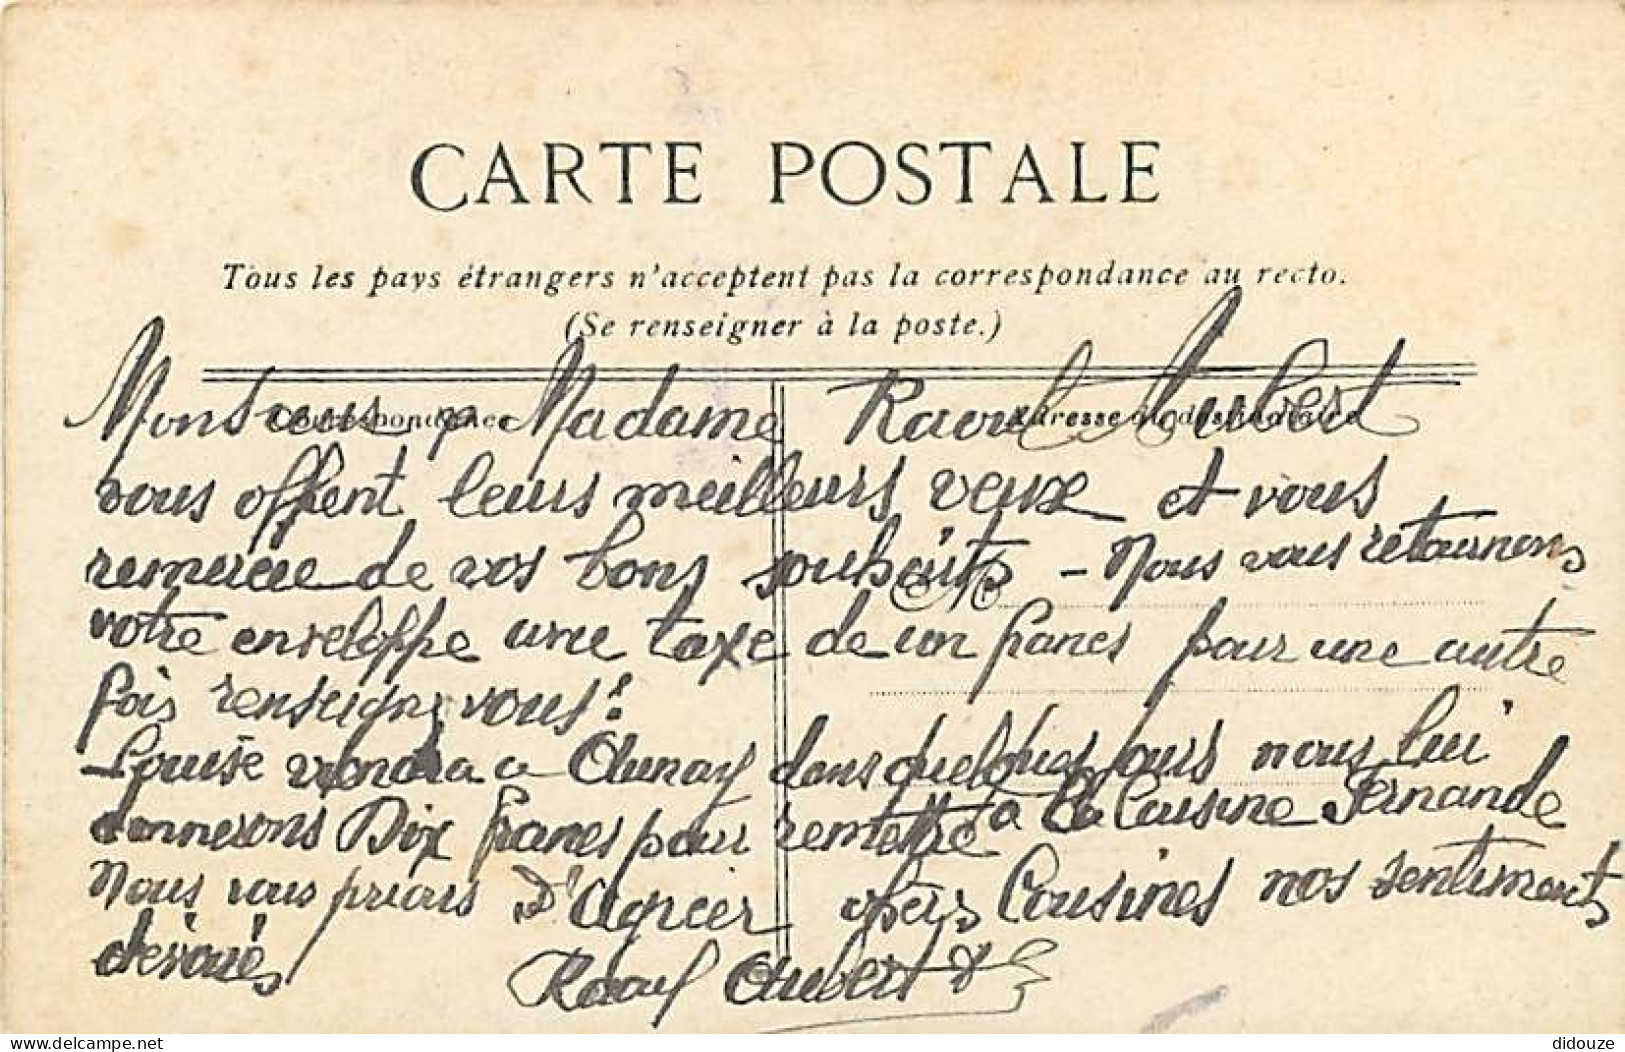 CARTE POSTALE
Tous les pays étrangers n'acceptent pas la correspondance au recto.
(Se renseigner à la poste.)
Correspondance
Adresse du destinataire
Monsieur e Madame Raoul Aubert
vous offrent leurs meilleurs veux et vous
remercie de vos bons souhaits - Nous vous retournons
votre enveloppe une taxe de un francs pour une autre
fois renseignez vous!
Louise viendra a Aunay dans quelques jours nous lui
donnerons Dix francs pour remettre à la Cousine Fernande
Nous vous prions D'Agréer chers Cousines nos sentiments
dévoués
Raoul Aubert
delcampe.net
didouze